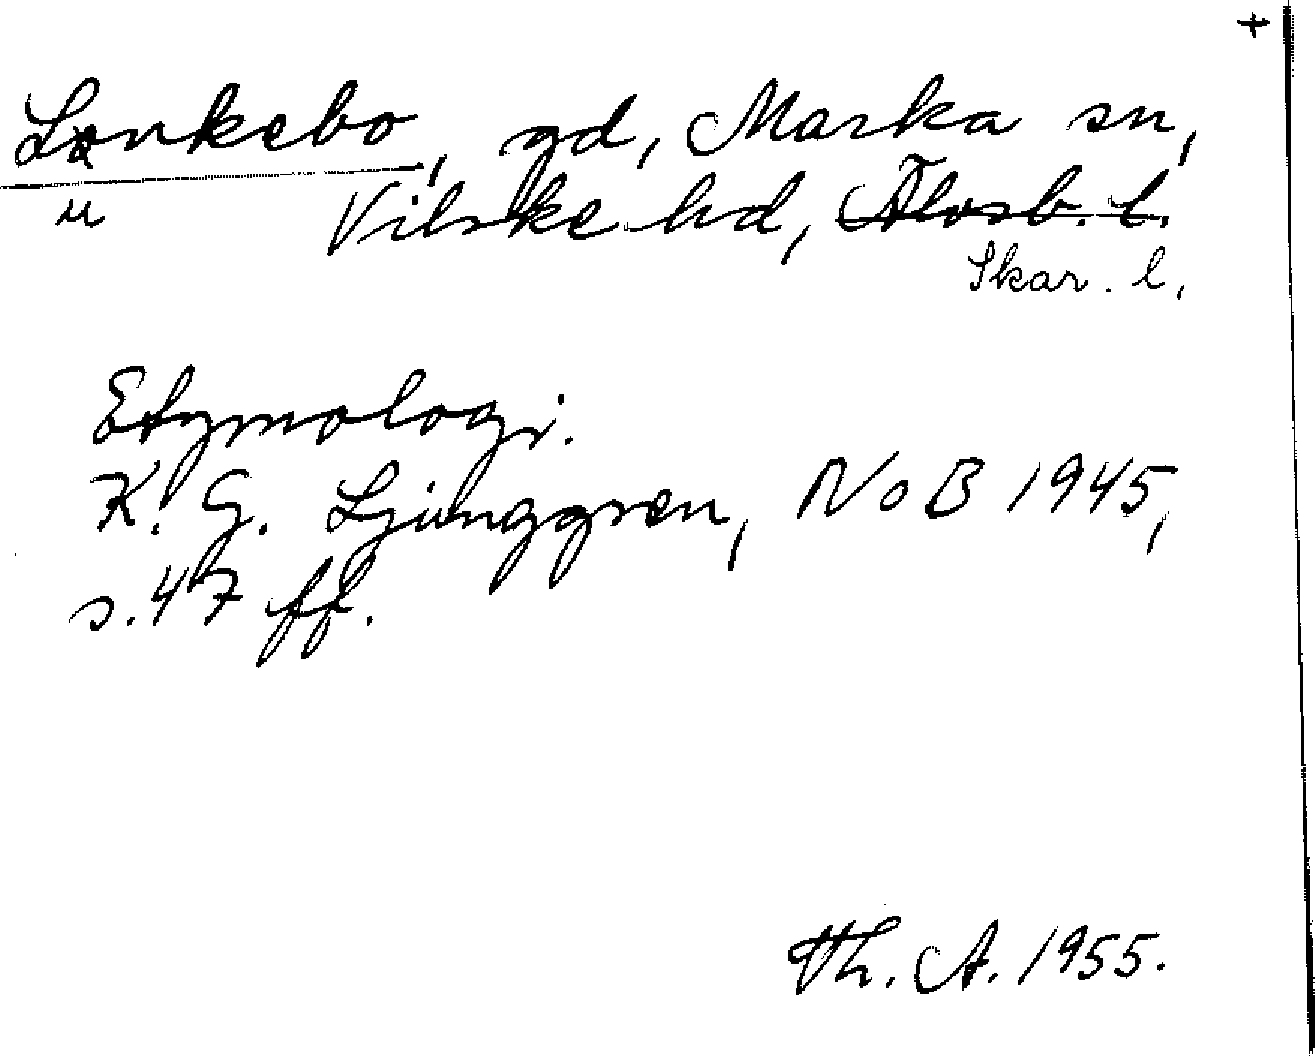 +
Lunkebo, gd, Marka sn,
Vilske hd, Älvsb. l.
Skar. l.
Etymologi.
K. G. Ljunggren, NoB 1945,
s. 47 ff.
Th. A. 1955.